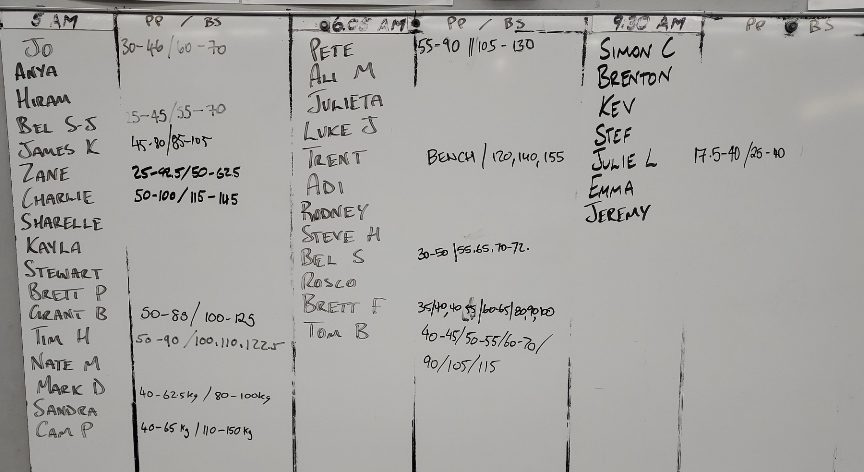 5 AM PP / BS
JO 30-46/60-70
ANYA
HIRAM
BEL S-J 25-45/55-70
JAMES K 45-80/85-105
ZANE 25-42.5/50-62.5
CHARLIE 50-100/115-145
SHARELLE
KAYLA
STEWART
BRETT P
GRANT B 50-80/100-125
TIM H 50-90/100.110.122.5
NATE M
MARK D 40-62.5kg/80-100kg
SANDRA
CAM P 40-65kg/110-150kg
AM PP / BS
PETE 55-90//105-130
ALI M
JULIETA
LUKE J
TRENT BENCH/120,140,155
ADI
RODNEY
STEVE H
BEL S 30-50/55.65.70-72.
ROSCO
BRETT F 35/40,40 /60-65/80,90,100
TOM B 40-45/50-55/60-70/
90/105/115
9.30 AM PP BS
SIMON C
BRENTON
KEV
STEF
JULIE L 17.5-40/25-40
EMMA
JEREMY